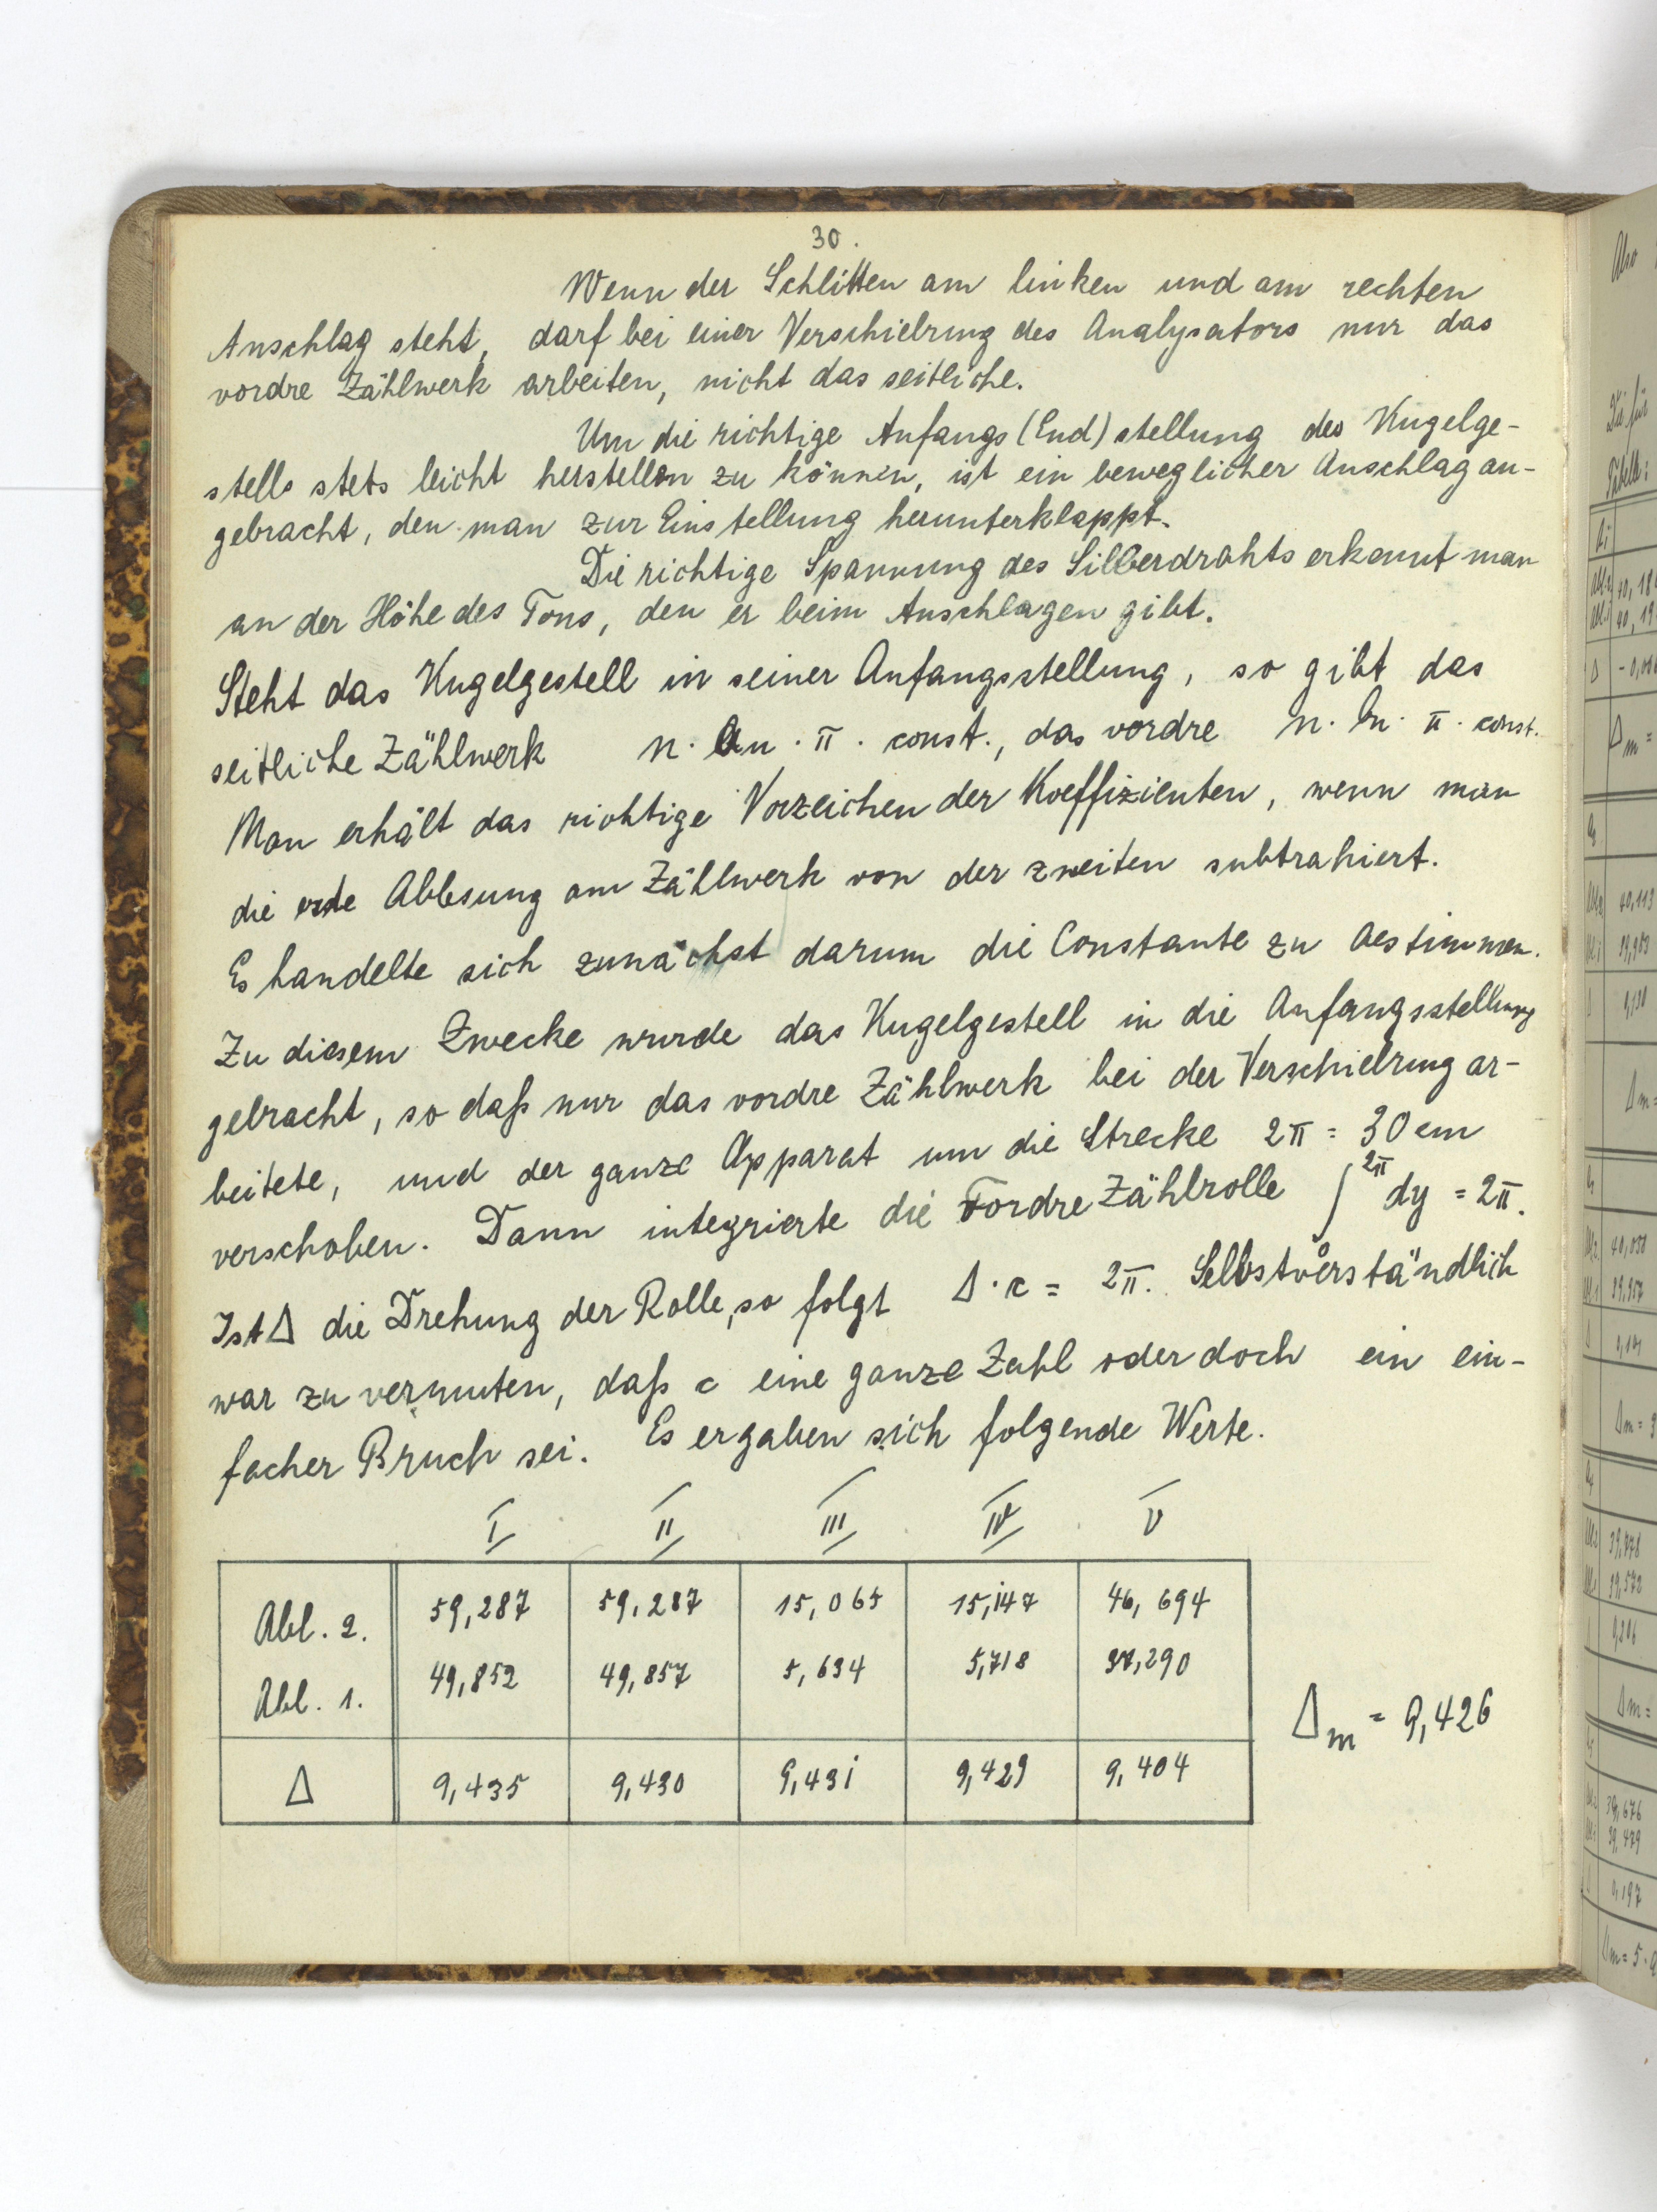 30.
Wenn der Schlitten am linken und am rechten
Anschlag steht, darf bei einer Verschiebung des Analysators nur das
vordre Zählwerk arbeiten, nicht das seitliche.
Um die richtige Anfangs (End) stellung des Kugelge-
stells stets leicht herstellen zu können, ist ein beweglicher Anschlag an-
gebracht, den man zur Einstellung herunterklappt.
Die richtige Spannung des Silberdrahts erkennt man
an der Höhe des Tons, den er beim Anschlagen gibt.
Steht das Kugelgestell in seiner Anfangsstellung, so gibt das
seitliche Zählwerk n. an . π . const., das vordre n. bn. π . const.
Man erhält das richtige Vorzeichen der Koeffizienten, wenn man
die erste Ablesung am Zählwerk von der zweiten subtrahiert.
Es handelte sich zunächst darum die Constante zu bestimmen.
Zu diesem Zwecke wurde das Kugelgestell in die Anfangsstellung
gebracht, so daß nur das vordre Zählwerk bei der Verschiebung ar-
beitete, und der ganze Apparat um die Strecke 2π = 30 cm
verschoben. Dann integrierte die vordre Zählrolle ∫ 2π dy = 2π.
Ist Δ die Drehung der Rolle, so folgt Δ . c = 2π. Selbstverständlich
war zu vermuten, daß c eine ganze Zahl oder doch ein ein-
facher Bruch sei. Es ergaben sich folgende Werte.
I II III IV V
Abl. 2. 59,287 59,287 15,065 15,147 46,694
Abl. 1. 49,852 49,857 5,634 5,718 37,290
Δ 9,435 9,430 9,431 9,429 9,404
Δm = 9,426